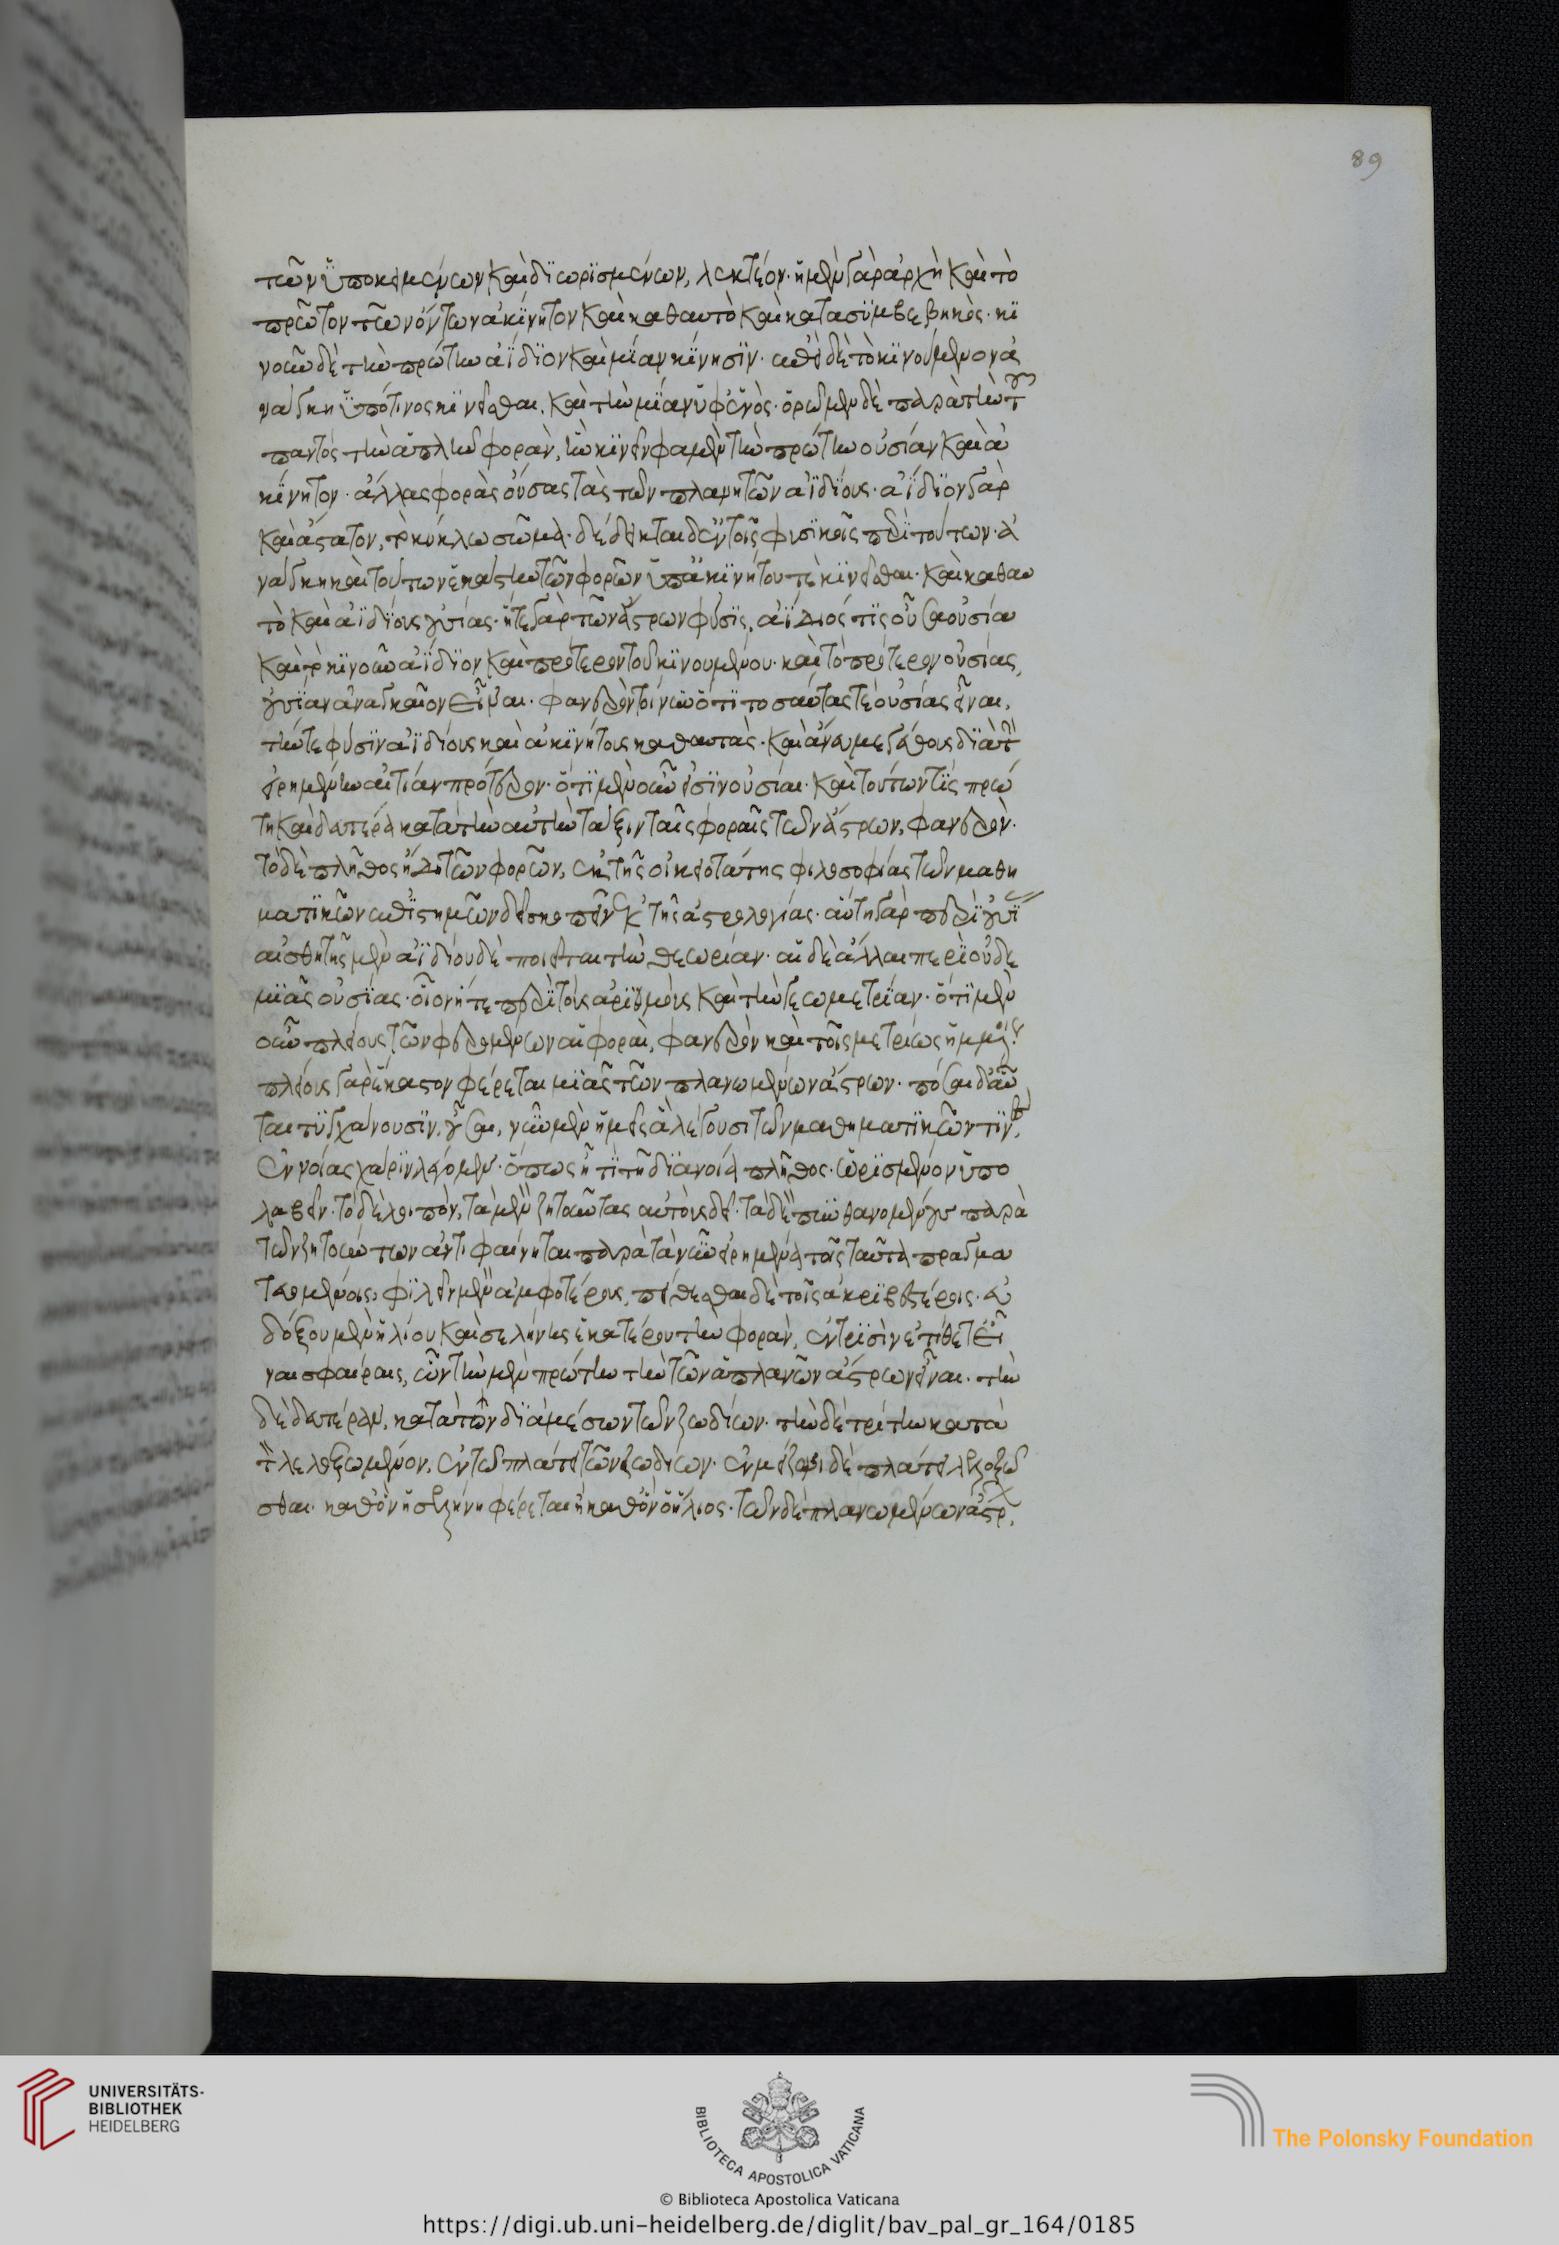 89
τῶν ὑποκειμένων καὶ διωρισμένων, λεκτέον· ἡ μὲν γὰρ ἀρχὴ καὶ τὸ
πρῶτον τῶν ὄντων ἀκίνητον καὶ καθ αυτὸ καὶ κατασυμβεβηκὸς· κι
νοῦν δὲ τὴν πρώτην ἀΐδιον καὶ μίαν κίνησιν· ἐπεὶ δὲ τὸ κινούμενον ἀ
νάγκη ὑπότινος κινεῖσθαι, καὶ τὴν μίαν ὑφενὸς· ὁρῶμεν δὲ παρὰ τὴν τοῦ
παντὸς τὴν ἁπλῆν φορὰν, ἣν κινεῖν φαμὲν τὴν πρώτην οὐσίαν καὶ ἀ
κίνητον· ἄλλας φορὰς οὔσας τὰς τῶν πλανητῶν ἀϊδίους· ἀΐδιον γὰρ
καὶ ἄστατον, τὸ κύκλω σῶμα· δέδεικται δ ἐν τοῖς φυσικοῖς περὶ τούτων· ἀ
νάγκη καὶ τούτων ἑκάστην τῶν φορῶν ὑπ ἀκινήτου τὲ κινεῖσθαι· καὶ καθ αυ
τὸ καὶ ἀϊδίους οὐσίας· ἥτε γὰρ τῶν ἄστρων φύσις, ἀΐδιός τις οὖσα οὐσία
καὶ τὸ κινοῦν ἀΐδιον καὶ πρότερον τοῦ κινουμένου· καὶ τὸ πρότερον οὐσίας,
οὐσίαν ἀναγκαῖον εἶναι· φανερὸν τοίνυν ὅτι τοσαύτας τὲ οὐσίας εἶναι,
τήν τε φύσιν ἀϊδίους καὶ ἀκινήτους καθ αυτὰς· καὶ ἄνευ μεγέθους διὰ τὴν
εἰρημένην αἰτίαν πρότερον· ὅτι μὲν οὖν εἰσὶν οὐσίαι· καὶ τούτων τίς πρώ
τη καὶ δευτέρα κατὰ τὴν αὐτὴν τάξιν ταῖς φοραῖς τῶν ἄστρων, φανερὸν·
τὸ δὲ πλῆθος ἤδη τῶν φορῶν, ἐκ τῆς οἰκειοτάτης φιλοσοφίας τῶν μαθη
ματικῶν ἐπιστημῶν δεῖ σκοπεῖν ἐκ τῆς ἀστρολογίας· αὕτη γὰρ περὶ οὐσίας
αἰσθητῆς μὲν ἀϊδίου δὲ ποιεῖται τὴν θεωρίαν· αἱ δὲ ἄλλαι περὶ οὐδε
μιᾶς οὐσίας· οἷον ἥτε περὶ τοὺς ἀριθμοὺς καὶ τὴν γεωμετρίαν· ὅτι μὲν
οὖν πλείους τῶν φερομένων αἱ φοραὶ, φανερὸν καὶ τοῖς μετρίως ἡμμένοις
πλείους γὰρ ἕκαστον φέρεται μιᾶς τῶν πλανωμένων ἄστρων· πόσαι δ αὗ
ται τυγχάνουσιν οὖσαι, νῦν μὲν ἡμεῖς ἃ λέγουσι τῶν μαθηματικῶν τινὲς,
ἐννοίας χάριν λέγομεν· ὅπως ᾖ τι τῆ διανοία πλῆθος ὡρισμένον ὑπο
λαβεῖν· τὸ δὲ λοιπὸν, τὰ μὲν ζητοῦντας αὐτοὺς δεῖ· τὰ δὲ πυνθανομένους παρὰ
τῶν ζητούντων ἄν τι φαίνηται παρὰ τὰ νῦν εἰρημένα τοῖς ταῦτα πραγμα
τευομένοις, φιλεῖν μὲν ἀμφοτέρους, πείθεσθαι δὲ τοῖς ἀκριβεστέροις· εὔ
δοξος μὲν ἡλίου καὶ σελήνης ἑκατέρου τὴν φορὰν, ἐν τρισὶν ἐτίθετ εἶ
ναι σφαίραις, ὧν τὴν μὲν πρώτην τὴν τῶν ἀπλανῶν ἄστρων εἶναι· τὴν
δὲ δευτέραν, κατὰ τὸν διὰ μέσων τῶν ζωδίων· τὴν δὲ τρίτην κατὰ
τὸν λελοξωμένον, ἐν τῶ πλάτει τῶν ζωδίων· ἐν μείζονι δὲ πλάτει λελοξῶ
σθαι· καθ ὃν ἡ σελήνη φέρεται ἢ καθ ὃν ὁ ἥλιος· τῶν δὲ πλανωμένων ἄστρων,
UNIVERSITÄTS-
BIBLIOTHEK
HEIDELBERG
BIBLIOTECA APOSTOLICA VATICANA
The Polonsky Foundation
© Biblioteca Apostolica Vaticana
https://digi.ub.uni-heidelberg.de/diglit/bav_pal_gr_164/0185